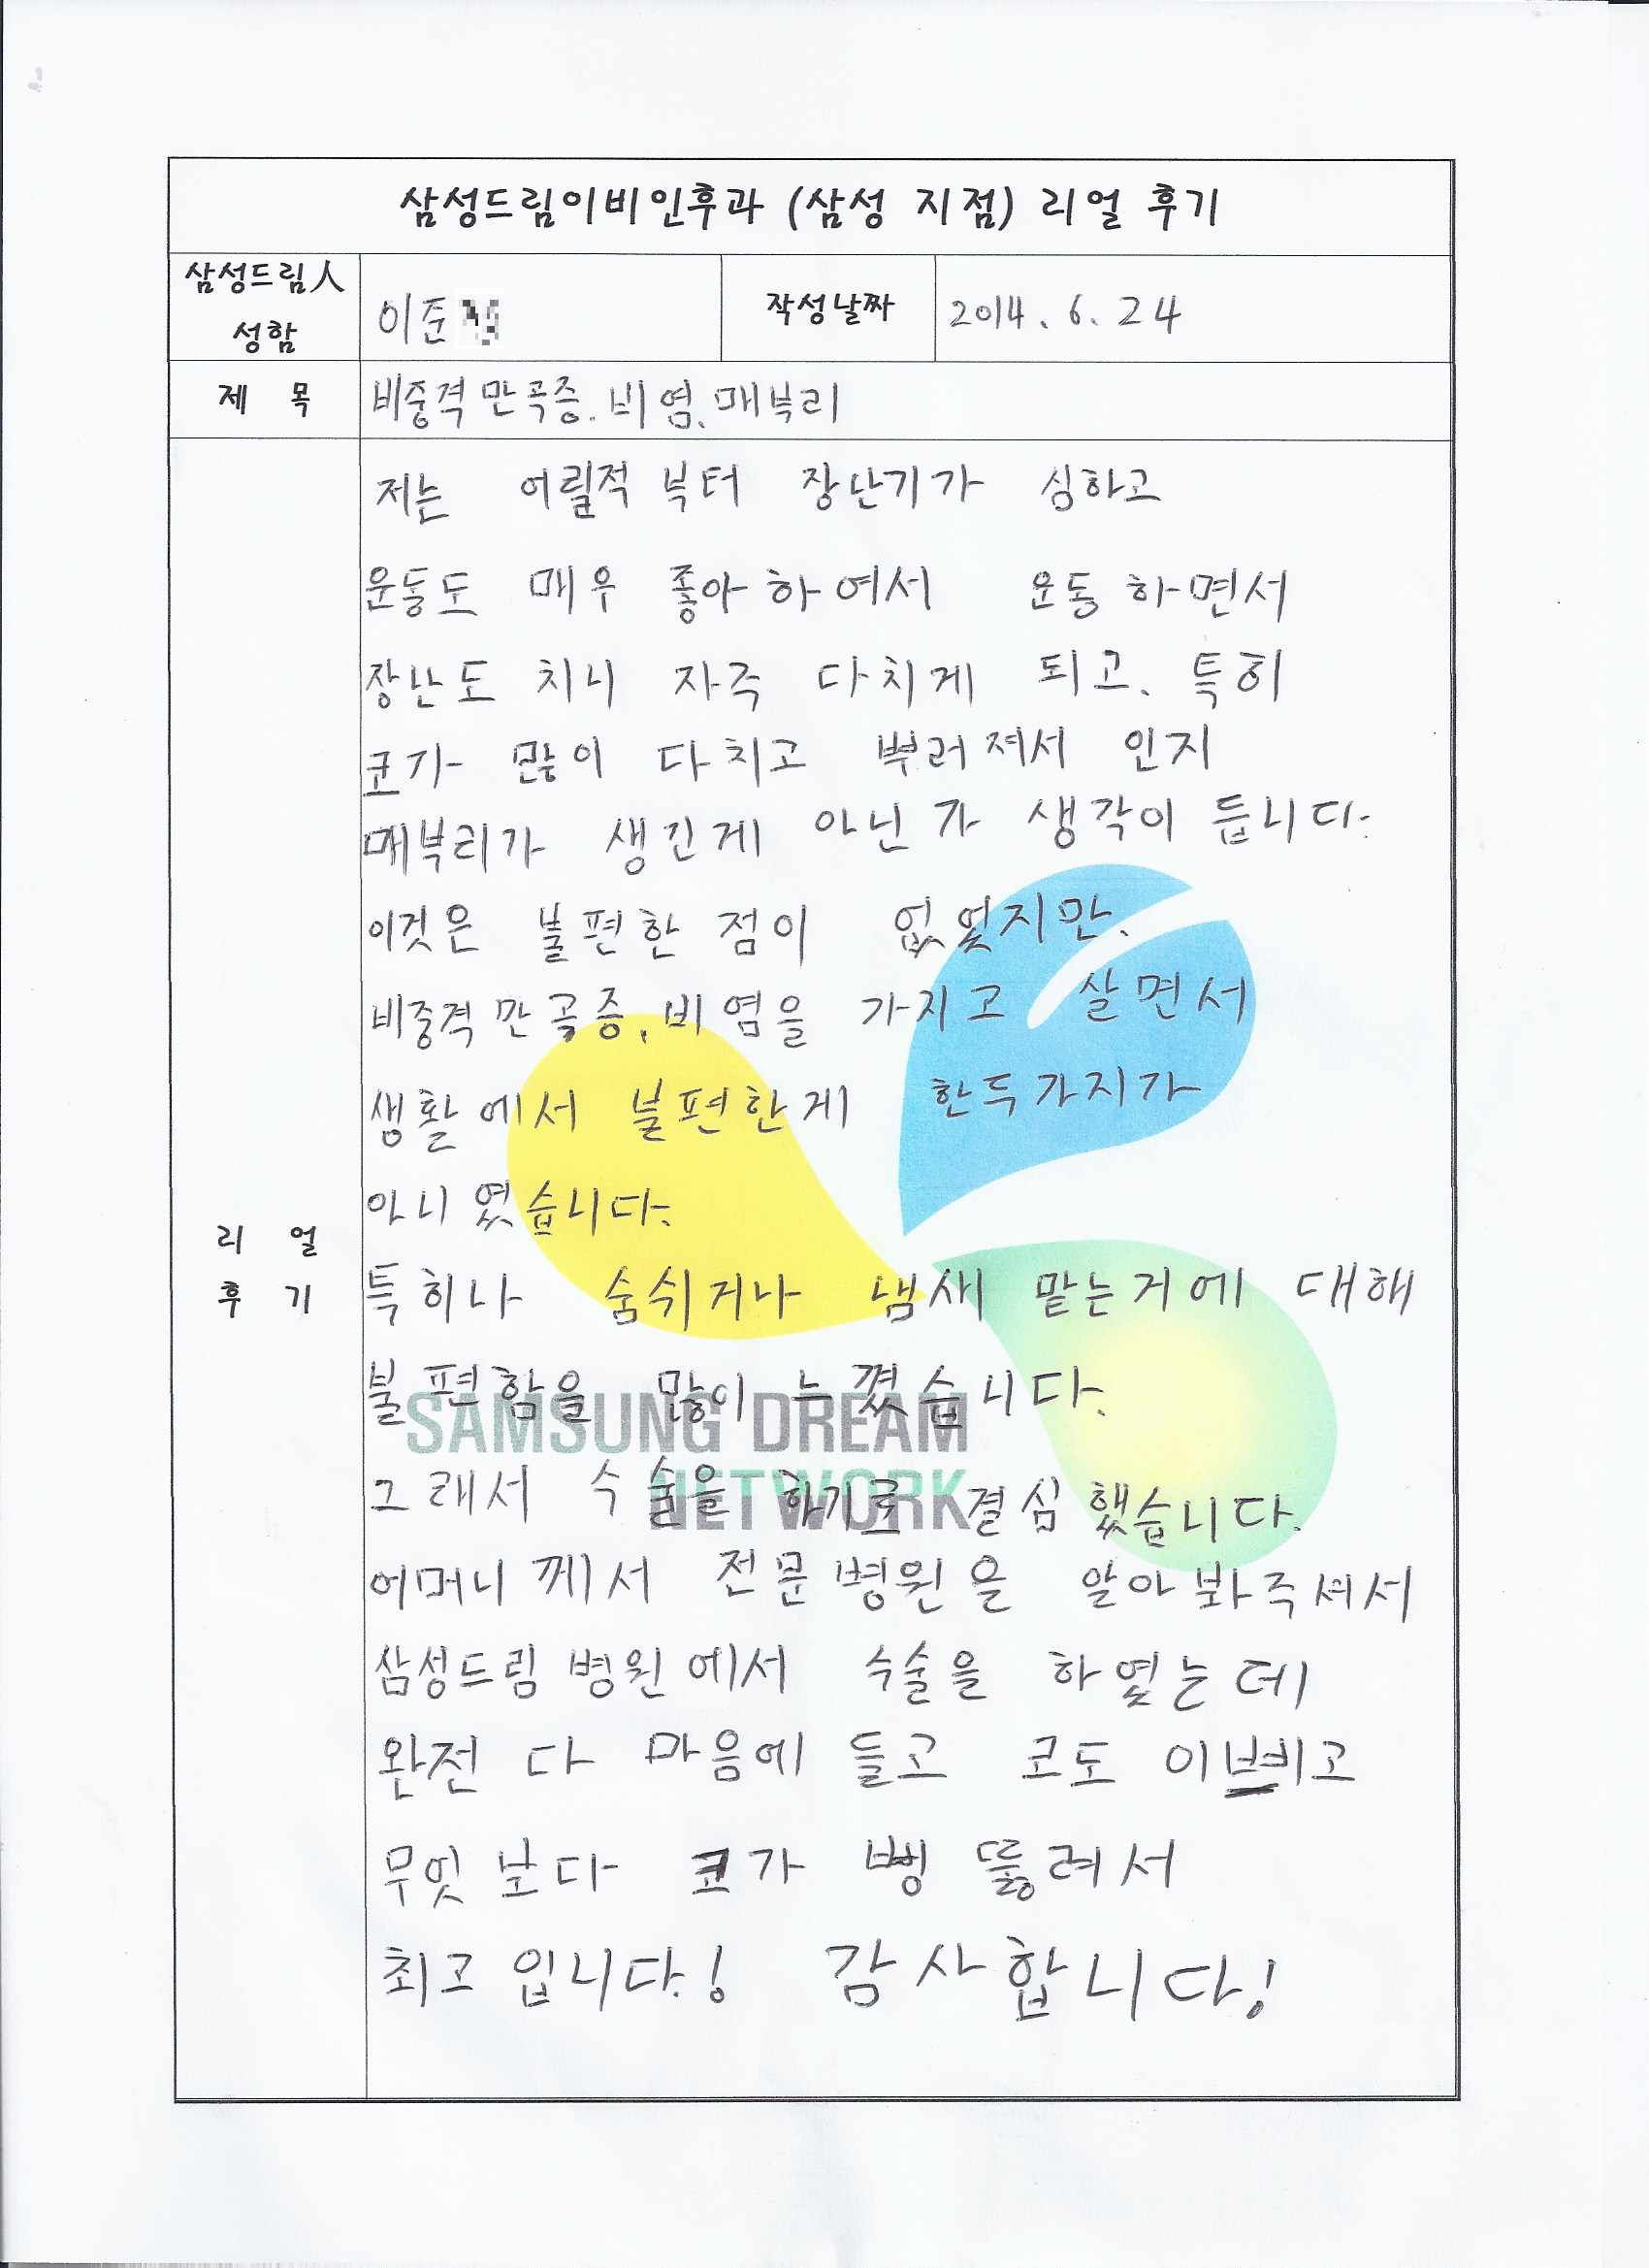 삼성드림이비인후과 (삼성 지점) 리얼 후기
삼성드림人
성함
이준
작성날짜
2014. 6. 24
제 목
비중격만곡증. 비염, 매부리
리 얼
후 기
저는 어릴적 부터 장난기가 심하고
운동도 매우 좋아하여서 운동하면서
장난도 치니 자주 다치게 되고, 특히
코가 많이 다치고 뿌러져서 인지
매부리가 생긴게 아닌가 생각이 듭니다.
이것은 불편한 점이 없었지만,
비중격만곡증, 비염을 가지고 살면서
생활에서 불편한게 한두가지가
아니였습니다.
특히나 숨쉬거나 냄새 맡는거에 대해
불편함을 많이 느꼈습니다.
그래서 수술을 하기로 결심했습니다.
어머니께서 전문병원을 알아봐주셔서
삼성드림병원에서 수술을 하였는데
완전 다 마음에 들고 코도 이쁘고
무엇보다 코가 뻥 뚫려서
최고입니다! 감사합니다!
SAMSUNG DREAM
NETWORK